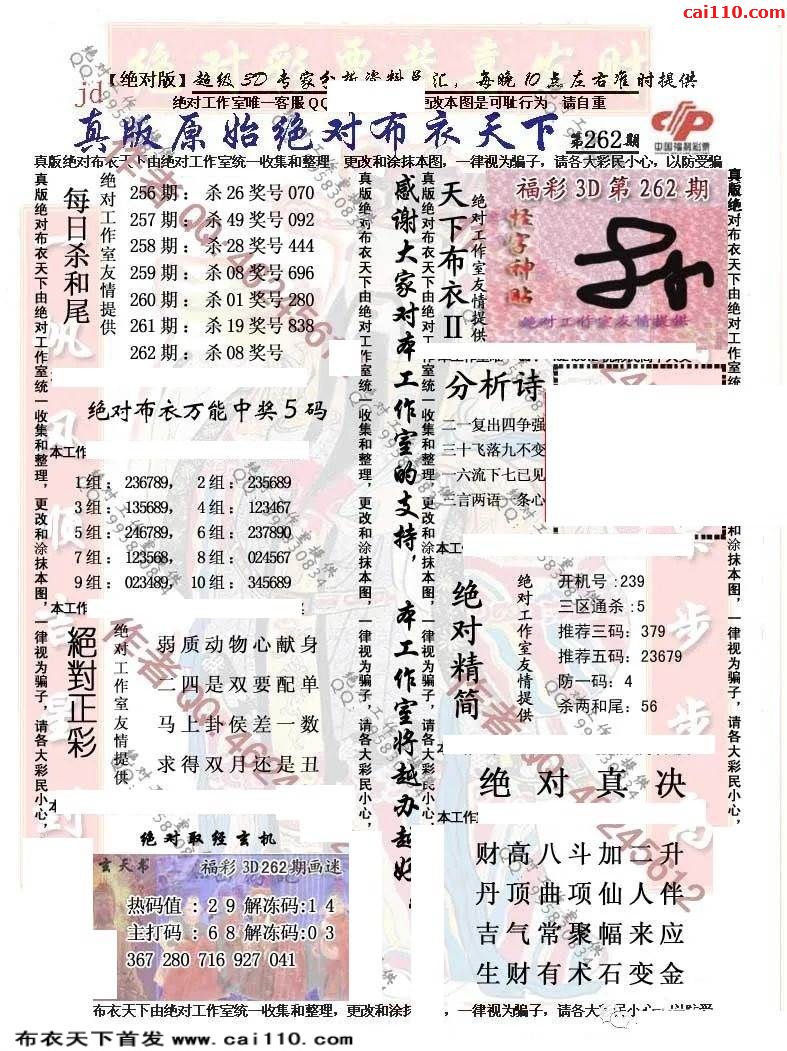 cai110.com
【绝对版】超级3D专家分析资料总汇，每晚10点左右准时提供
jd
绝对工作室唯一客服QQ
更改本图是可耻行为 请自重
真版原始绝对布衣天下
第262期
中国福利彩票
真版绝对布衣天下由绝对工作室统一收集和整理，更改和涂抹本图，一律视为骗子，请各大彩民小心，以防受骗
每日杀和尾
绝对工作室友情提供
256期：杀26奖号070
257期：杀49奖号092
258期：杀28奖号444
259期：杀08奖号696
260期：杀01奖号280
261期：杀19奖号838
262期：杀08奖号
绝对布衣万能中奖5码
本工作
1组：236789， 2组：235689
3组：135689， 4组：123467
5组：246789， 6组：237890
7组：123568， 8组：024567
9组：023489， 10组：345689
本工作
絕對正彩
绝对工作室友情提供
弱质动物心献身
二四是双要配单
马上卦侯差一数
求得双月还是丑
绝对取经玄机
玄天书
福彩3D262期画迷
热码值:29解冻码:14
主打码:68解冻码:03
367 280 716 927 041
感谢大家对本工作室的支持，本工作室将越办越好
天下布衣II
绝对工作室友情提供
福彩3D第262期
怪字神贴
绝对工作室友情提供
分析诗
二一复出四争强
三十飞落九不变
一六流下七已见
二言两语一条心
本工
绝对精简
绝对工作室友情提供
开机号:239
三区通杀:5
推荐三码:379
推荐五码:23679
防一码:4
杀两和尾:56
绝对真决
本工作
财高八斗加二升
丹顶曲项仙人伴
吉气常聚幅来应
生财有术石变金
布衣天下由绝对工作室统一收集和整理，更改和涂抹
，一律视为骗子，请各大彩民小心，以防受
布衣天下首发 www.cai110.com